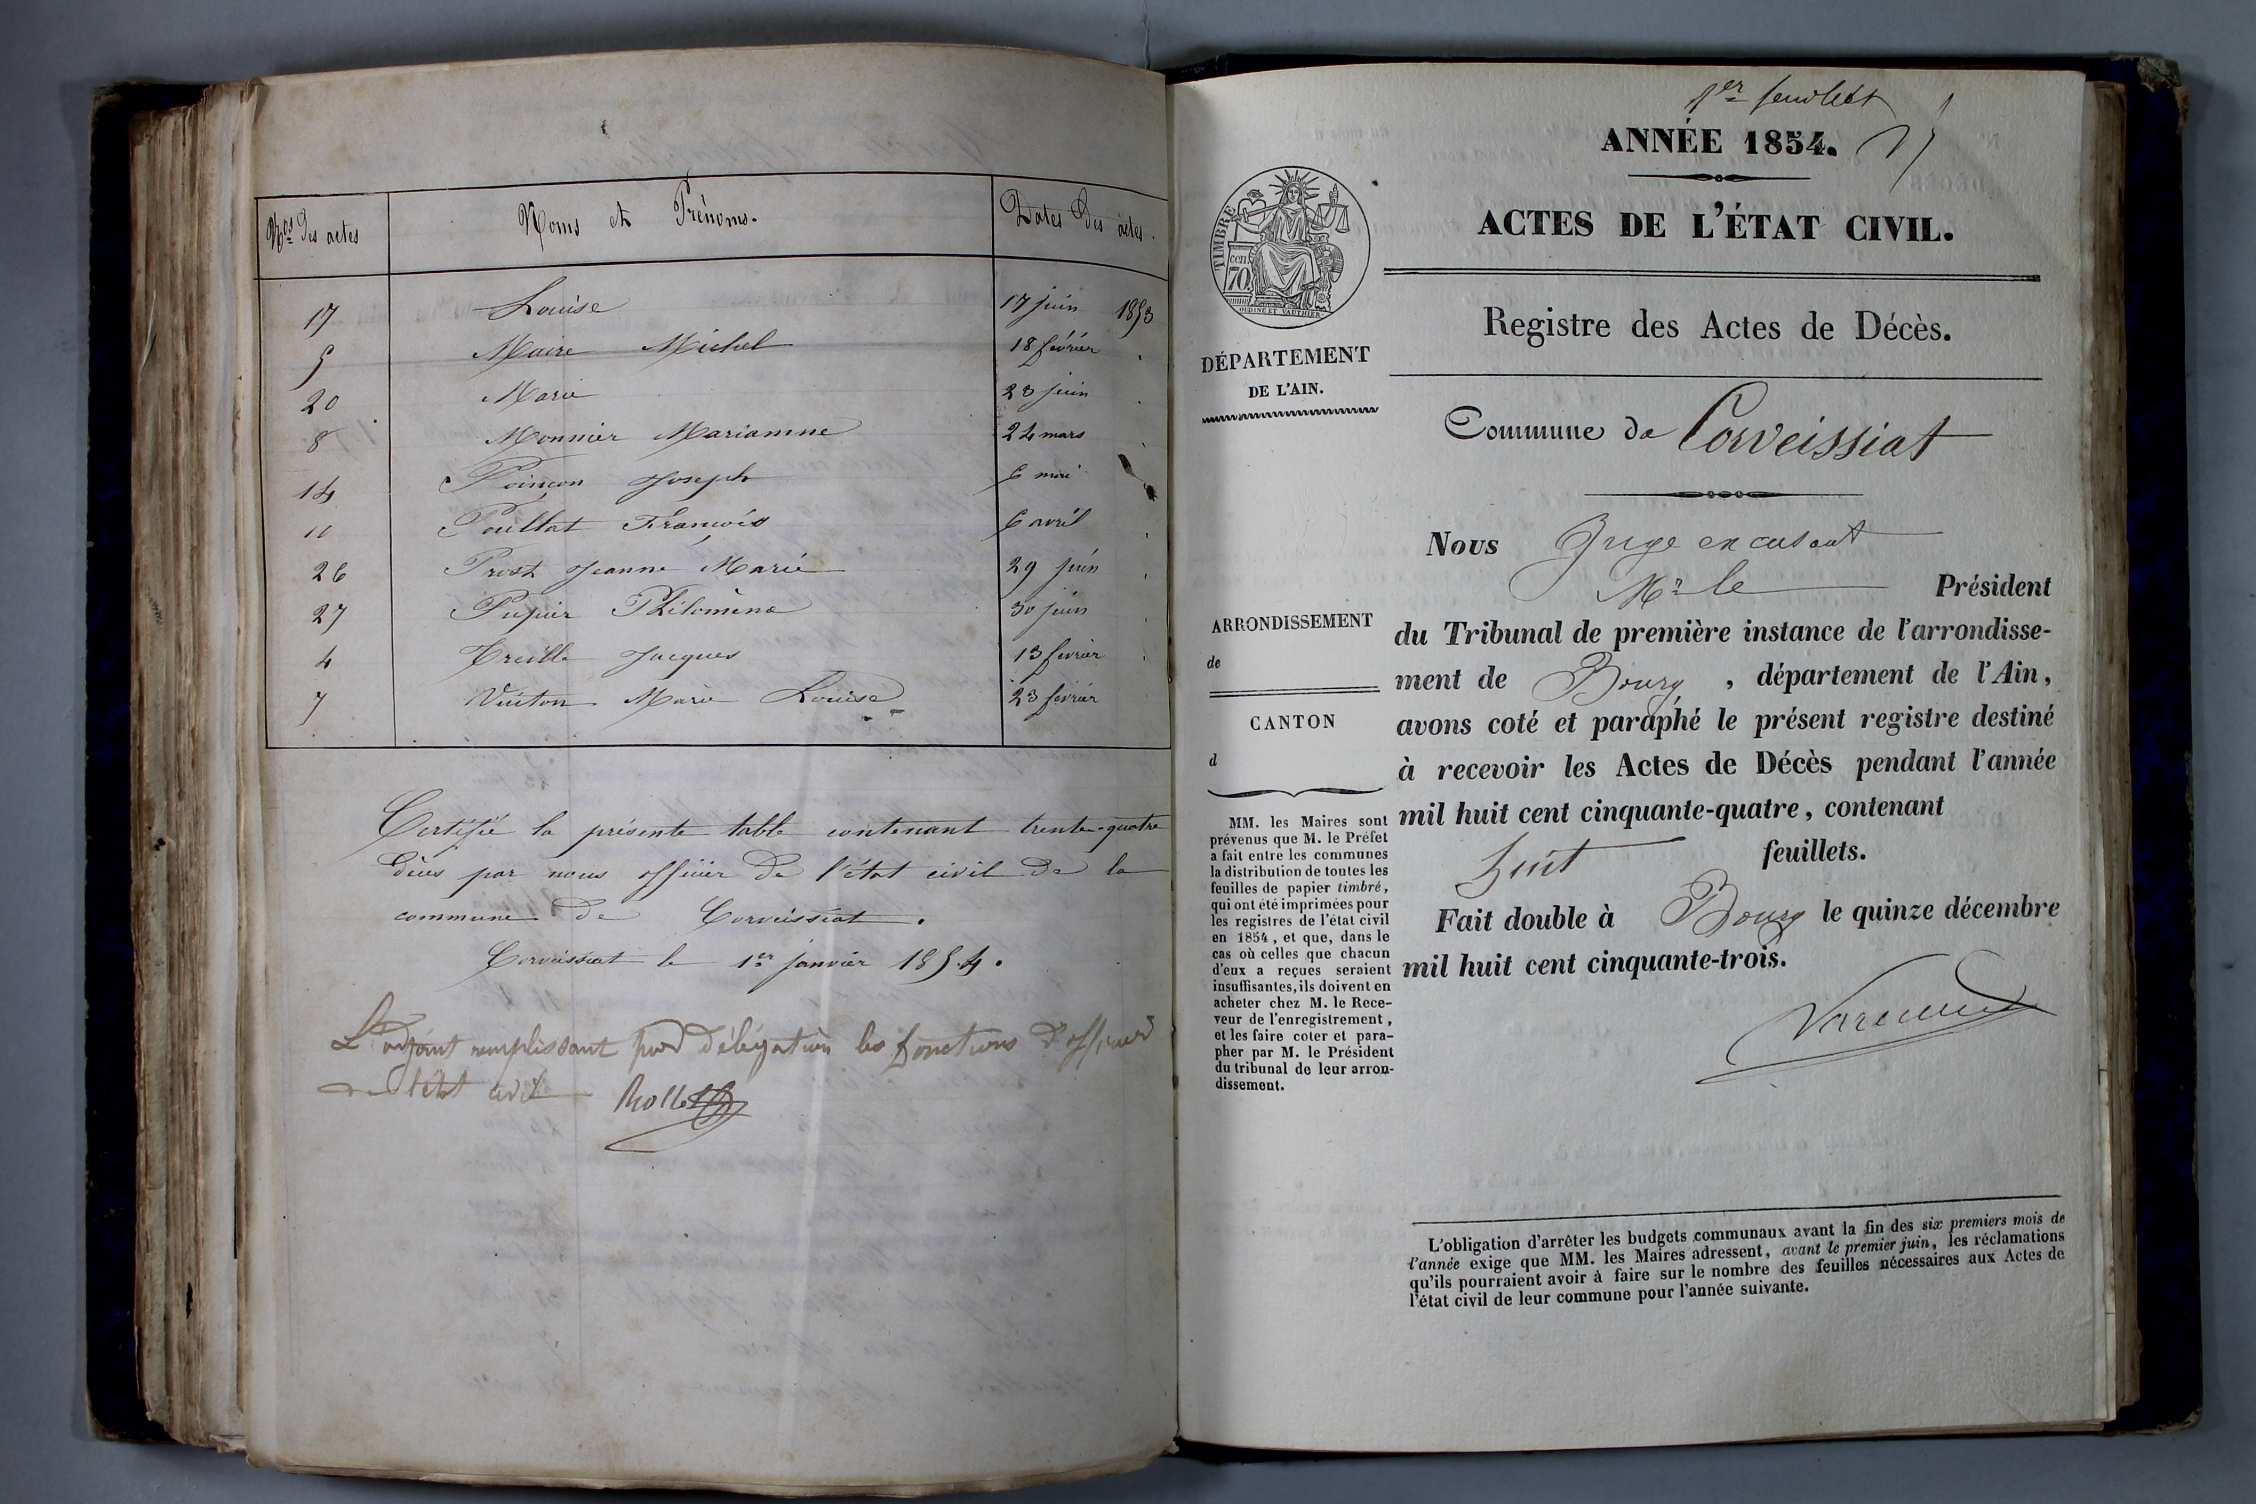 Nos des actes Noms et Prénoms. Dates des actes.
17 Louise 17 juin 1853
5 Maire Michel 18 février
20 Marie 23 juin
8 Monnier Mariamne 24 mars
14 Poinçon Joseph 6 mai
10 Poullat François 6 avril
26 Prost Jeanne Marie 29 juin
27 Pupier Philomène 30 juin
4 Treille Jacques 13 février
7 Vuiton Marie Louise 23 février
Certifié la présente table contenant trente-quatre
décès par nous officier de l'état civil de la
commune de Corveissiat.
Corveissiat le 1er janvier 1854.
L'adjoint remplissant par délégation les fonctions d'officier
de l'état civil Rollet
1er feuillet
ANNÉE 1854.
ACTES DE L'ÉTAT CIVIL.
TIMBRE
70 cen.
OUDINÉ ET VAUTHIER
Registre des Actes de Décès.
DÉPARTEMENT
DE L'AIN.
Commune de Corveissiat
Nous Juge en cas d'empt
Mr le Président
du Tribunal de première instance de l'arrondisse-
ment de Bourg, département de l'Ain,
avons coté et paraphé le présent registre destiné
à recevoir les Actes de Décès pendant l'année
mil huit cent cinquante-quatre, contenant
huit feuillets.
Fait double à Bourg le quinze décembre
mil huit cent cinquante-trois.
ARRONDISSEMENT
de
CANTON
d
MM. les Maires sont
prévenus que M. le Préfet
a fait entre les communes
la distribution de toutes les
feuilles de papier timbré,
qui ont été imprimées pour
les registres de l'état civil
en 1854, et que, dans le
cas où celles que chacun
d'eux a reçues seraient
insuffisantes, ils doivent en
acheter chez M. le Rece-
veur de l'enregistrement,
et les faire coter et para-
pher par M. le Président
du tribunal de leur arron-
dissement.
L'obligation d'arrêter les budgets communaux avant la fin des six premiers mois de
l'année exige que MM. les Maires adressent, avant le premier juin, les réclamations
qu'ils pourraient avoir à faire sur le nombre des feuilles nécessaires aux Actes de
l'état civil de leur commune pour l'année suivante.